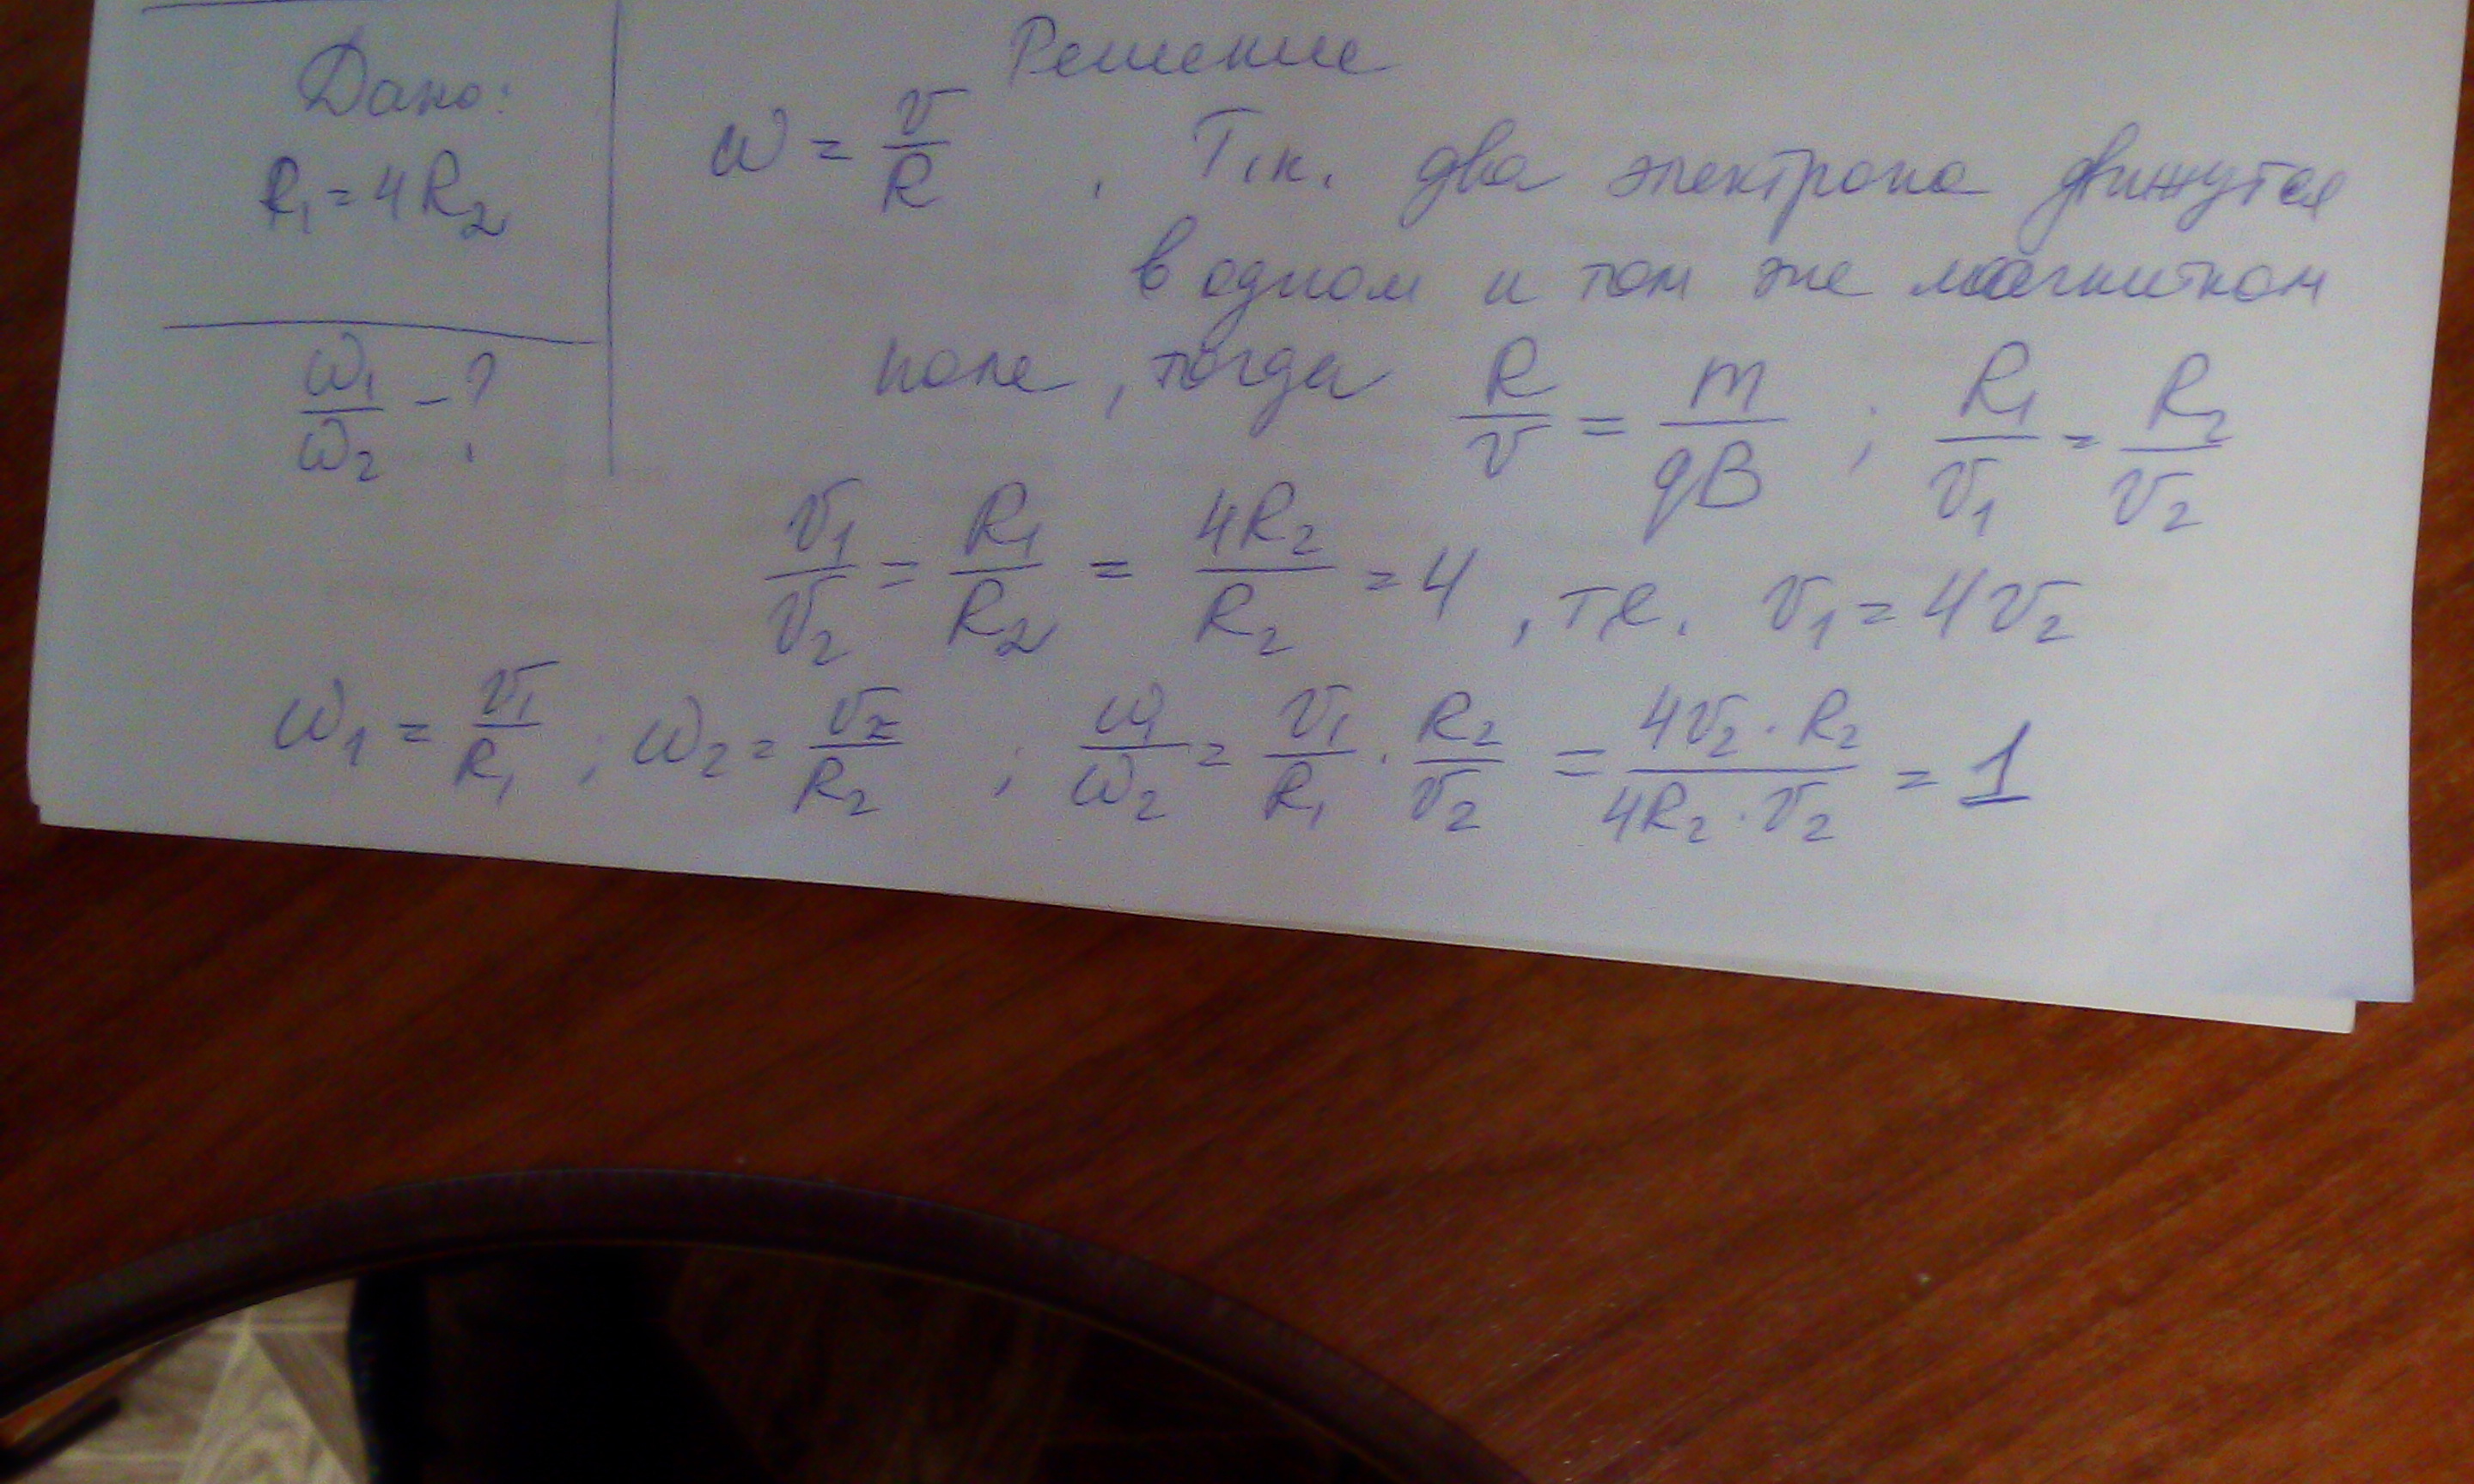 Дано:
R₁ = 4R₂
ω₁/ω₂ - ?
Решение
ω = v/R , Т.к. два электрона движутся
в одном и том же магнитном
поле, тогда R/v = m/qB ; R₁/v₁ = R₂/v₂
v₁/v₂ = R₁/R₂ = 4R₂/R₂ = 4 , т.е. v₁ = 4v₂
ω₁ = v₁/R₁ ; ω₂ = v₂/R₂ ; ω₁/ω₂ = v₁/R₁ · R₂/v₂ = 4v₂·R₂/4R₂·v₂ = 1